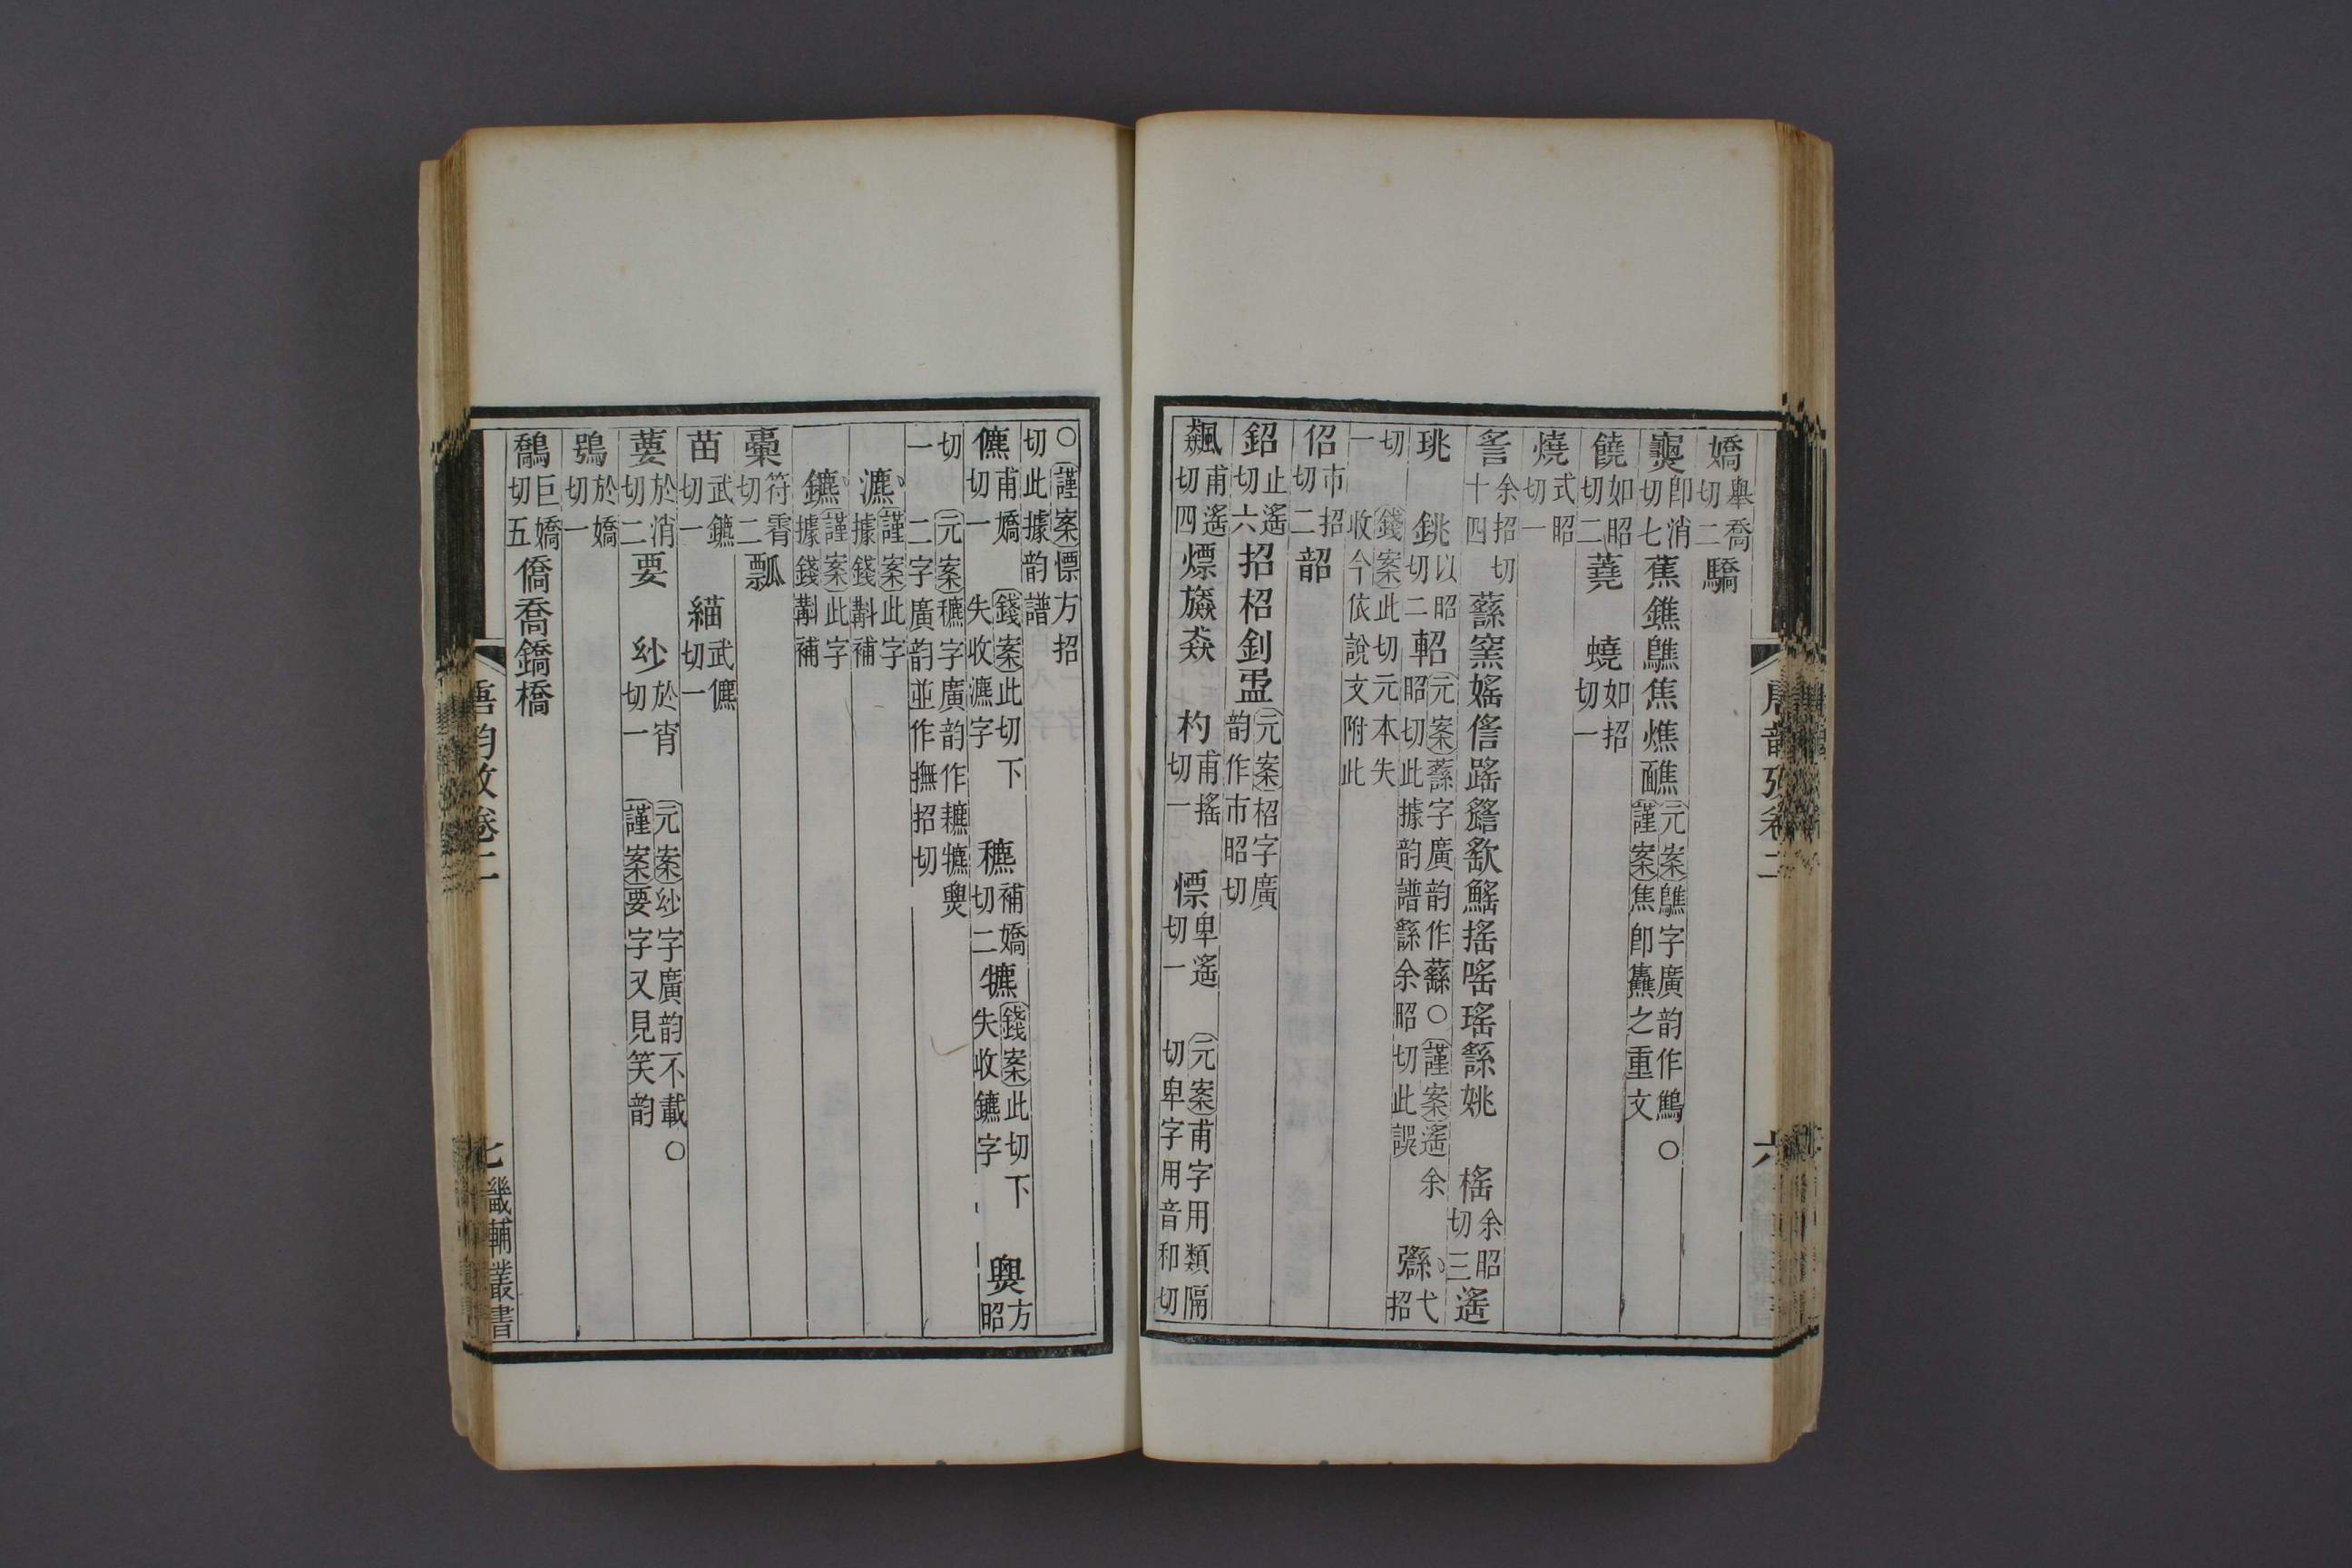 嬌舉喬切二驕
㸈即消切七蕉鐎鷦焦燋醮元案鷦字廣韵作鷦○謹案焦即㸈之重文
饒如昭切二蕘 蟯如招切一
燒式昭切一
䚻余招切十四 䔄窯媱傜䠛簷歊鰩搖嗂瑤繇姚 榣余昭切三遙
珧 銚以昭切二軺元案䔄字廣韵作蘨○謹案遙余昭切此據韵譜繇余昭切此誤 㺸弋招
切一 錢案此切元本失收今依說文附此
佋市招切二韶
鉊止遙切六招柖釗盄元案柖字廣韵作市昭切
飆甫遙切四熛旚猋 杓甫搖切一 慓卑遙切一 元案甫字用類隔切卑字用音和切
○謹案慓方招切此據韵譜
儦甫嬌切一 錢案此切下失收瀌字 穮補嬌切二犥錢案此切下失收鑣字 㶾方昭
切一 元案穮字廣韵作䅺犥㶾二字廣韵並作撫招切
瀌謹案此字據錢斠補
鑣謹案此字據錢斠補
橐符霄切二瓢
苗武鑣切一 緢武儦切一
葽於消切二要 紗於宵切一 元案紗字廣韵不載○謹案要字又見笑韵
鴞於嬌切一
鷮巨嬌切五僑喬鐈橋
唐韵攷卷二
六
唐韵攷卷二
七
畿輔叢書